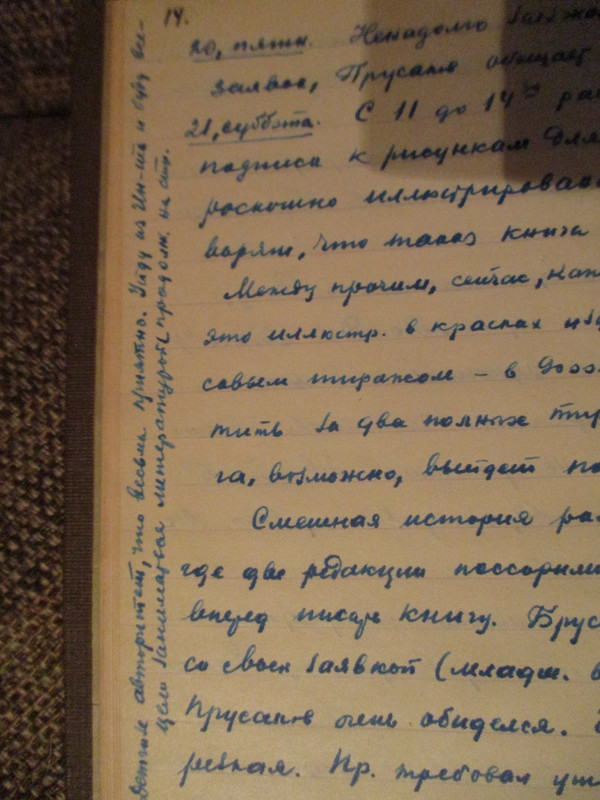 14.
20, пятн. Ненадолго
заявок, Прусаков обещает
21, суббота. С 11 до 14
подписи к рисункам для
роскошно иллюстрирован
ворят, что такая книга
Между прочим, сейчас,
это иллюстр. в красках
совым тиражом – в
тить за два полных тир
га, возможно, выйдет по
Смешная история
где две редакции поссорили
вперед писать книгу.
со своей заявкой (младш. в
Прусаков очень обиделся.
Пр. требовал
авторитет, что весьма приятно. Уйду из Ин-та и буду
заниматься литературой (продолж. на стр.